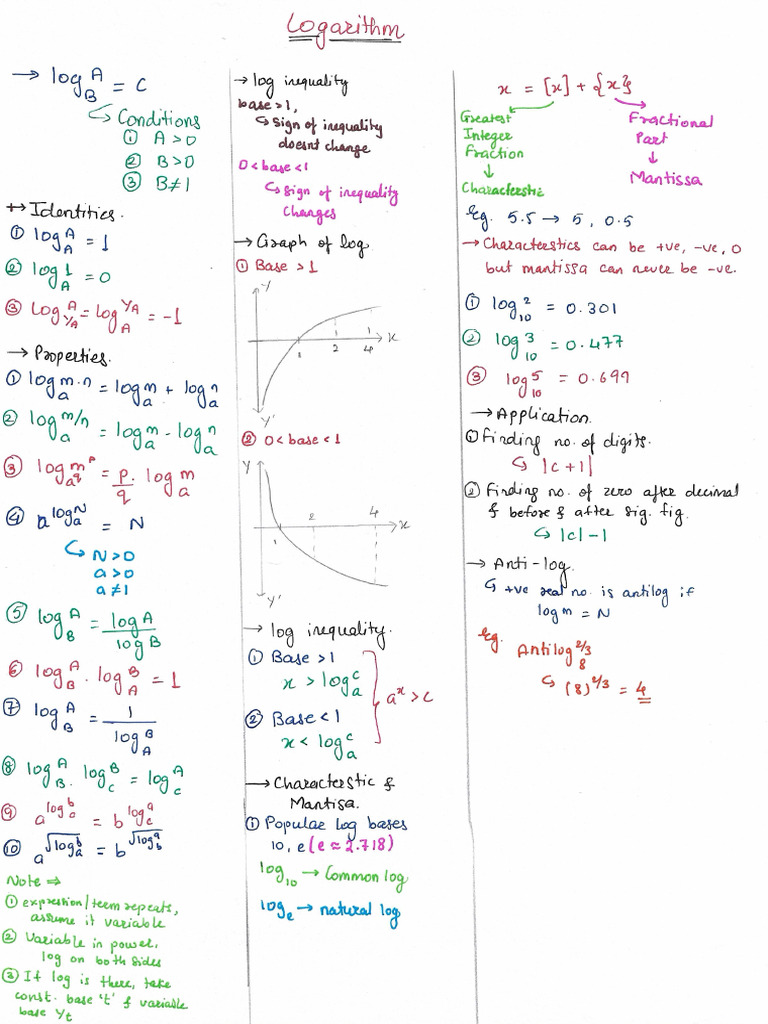 Logarithm
→ log_B^A = C
↳ Conditions
① A > 0
② B > 0
③ B ≠ 1
↦ Identities.
① log_A^A = 1
② log_A^1 = 0
③ log_{1/A}^A = log_A^{1/A} = -1
→ Properties.
① log_a^{m·n} = log_a^m + log_a^n
② log_a^{m/n} = log_a^m - log_a^n
③ log_{a^q}^{m^p} = p/q · log_a^m
④ a^{log_a^N} = N
↳ N > 0
a > 0
a ≠ 1
⑤ log_B^A = log A / log B
⑥ log_B^A · log_A^B = 1
⑦ log_B^A = 1 / log_A^B
⑧ log_B^A · log_C^B = log_C^A
⑨ a^{log_c^b} = b^{log_c^a}
⑩ a^{√log_a^b} = b^{√log_b^a}
Note ⇒
① expression/term repeats,
assume it variable
② Variable in power,
log on both sides
③ If log is there, take
const. base 't' & variable
base 1/t
→ log inequality
base > 1,
↳ Sign of inequality
doesnt change
0 < base < 1
↳ Sign of inequality
changes
→ Graph of log.
① Base > 1
Y
x
1 2 4
Y'
② 0 < base < 1
Y
1 2 4
x
Y'
→ log inequality.
① Base > 1
x > log_a^c
a^x > c
② Base < 1
x < log_a^c
→ Characterstic &
Mantisa.
① Popular log bases
10, e (e ≈ 2.718)
log_10 → Common log
log_e → natural log
x = [x] + {x}
Greatest
Integer
Fraction
↓
Characterstic
Fractional
Part
↓
Mantissa
Eg. 5.5 → 5, 0.5
→ Characterstics can be +ve, -ve, 0
but mantissa can never be -ve.
① log_10^2 = 0.301
② log_10^3 = 0.477
③ log_10^5 = 0.699
→ Application.
① Finding no. of digits.
↳ |c + 1|
② Finding no. of zero after decimal
& before & after sig. fig.
↳ |c| - 1
→ Anti-log.
↳ +ve real no. is antilog if
log m = N
Eg. Antilog_8^{2/3}
↳ (8)^{2/3} = 4